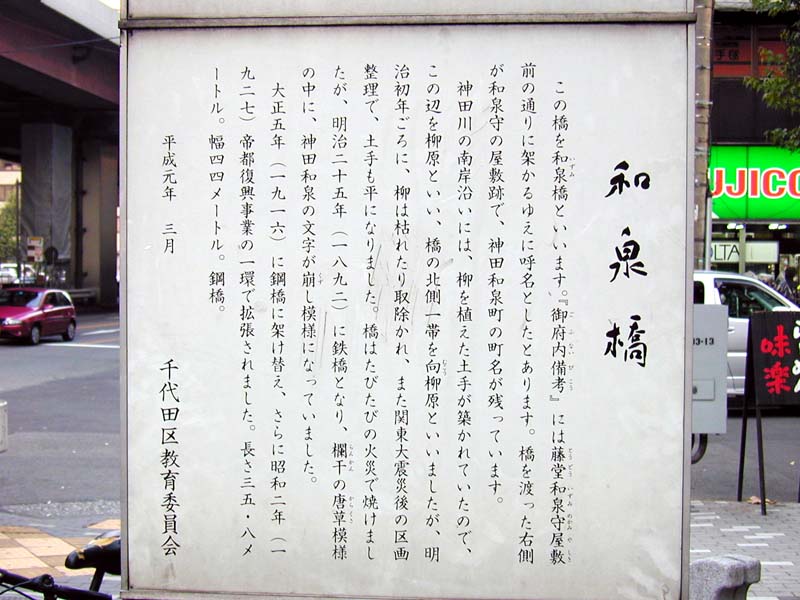 和泉橋
この橋を和泉橋といいます。『御府内備考』には藤堂和泉守屋敷
前の通りに架かるゆえに呼名としたとあります。橋を渡った右側
が和泉守の屋敷跡で、神田和泉町の町名が残っています。
神田川の南岸沿いには、柳を植えた土手が築かれていたので、
この辺を柳原といい、橋の北側一帯を向柳原といいましたが、明
治初年ごろに、柳は枯れたり取除かれ、また関東大震災後の区画
整理で、土手も平になりました。橋はたびたびの火災で焼けまし
たが、明治二十五年（一八九二）に鉄橋となり、欄干の唐草模様
の中に、神田和泉の文字が崩し模様になっていました。
大正五年（一九一六）に鋼橋に架け替え、さらに昭和二年（一
九二七）帝都復興事業の一環で拡張されました。長さ三五・八メ
ートル。幅四四メートル。鋼橋。
平成元年 三月
千代田区教育委員会
UJICO
味楽
03-13